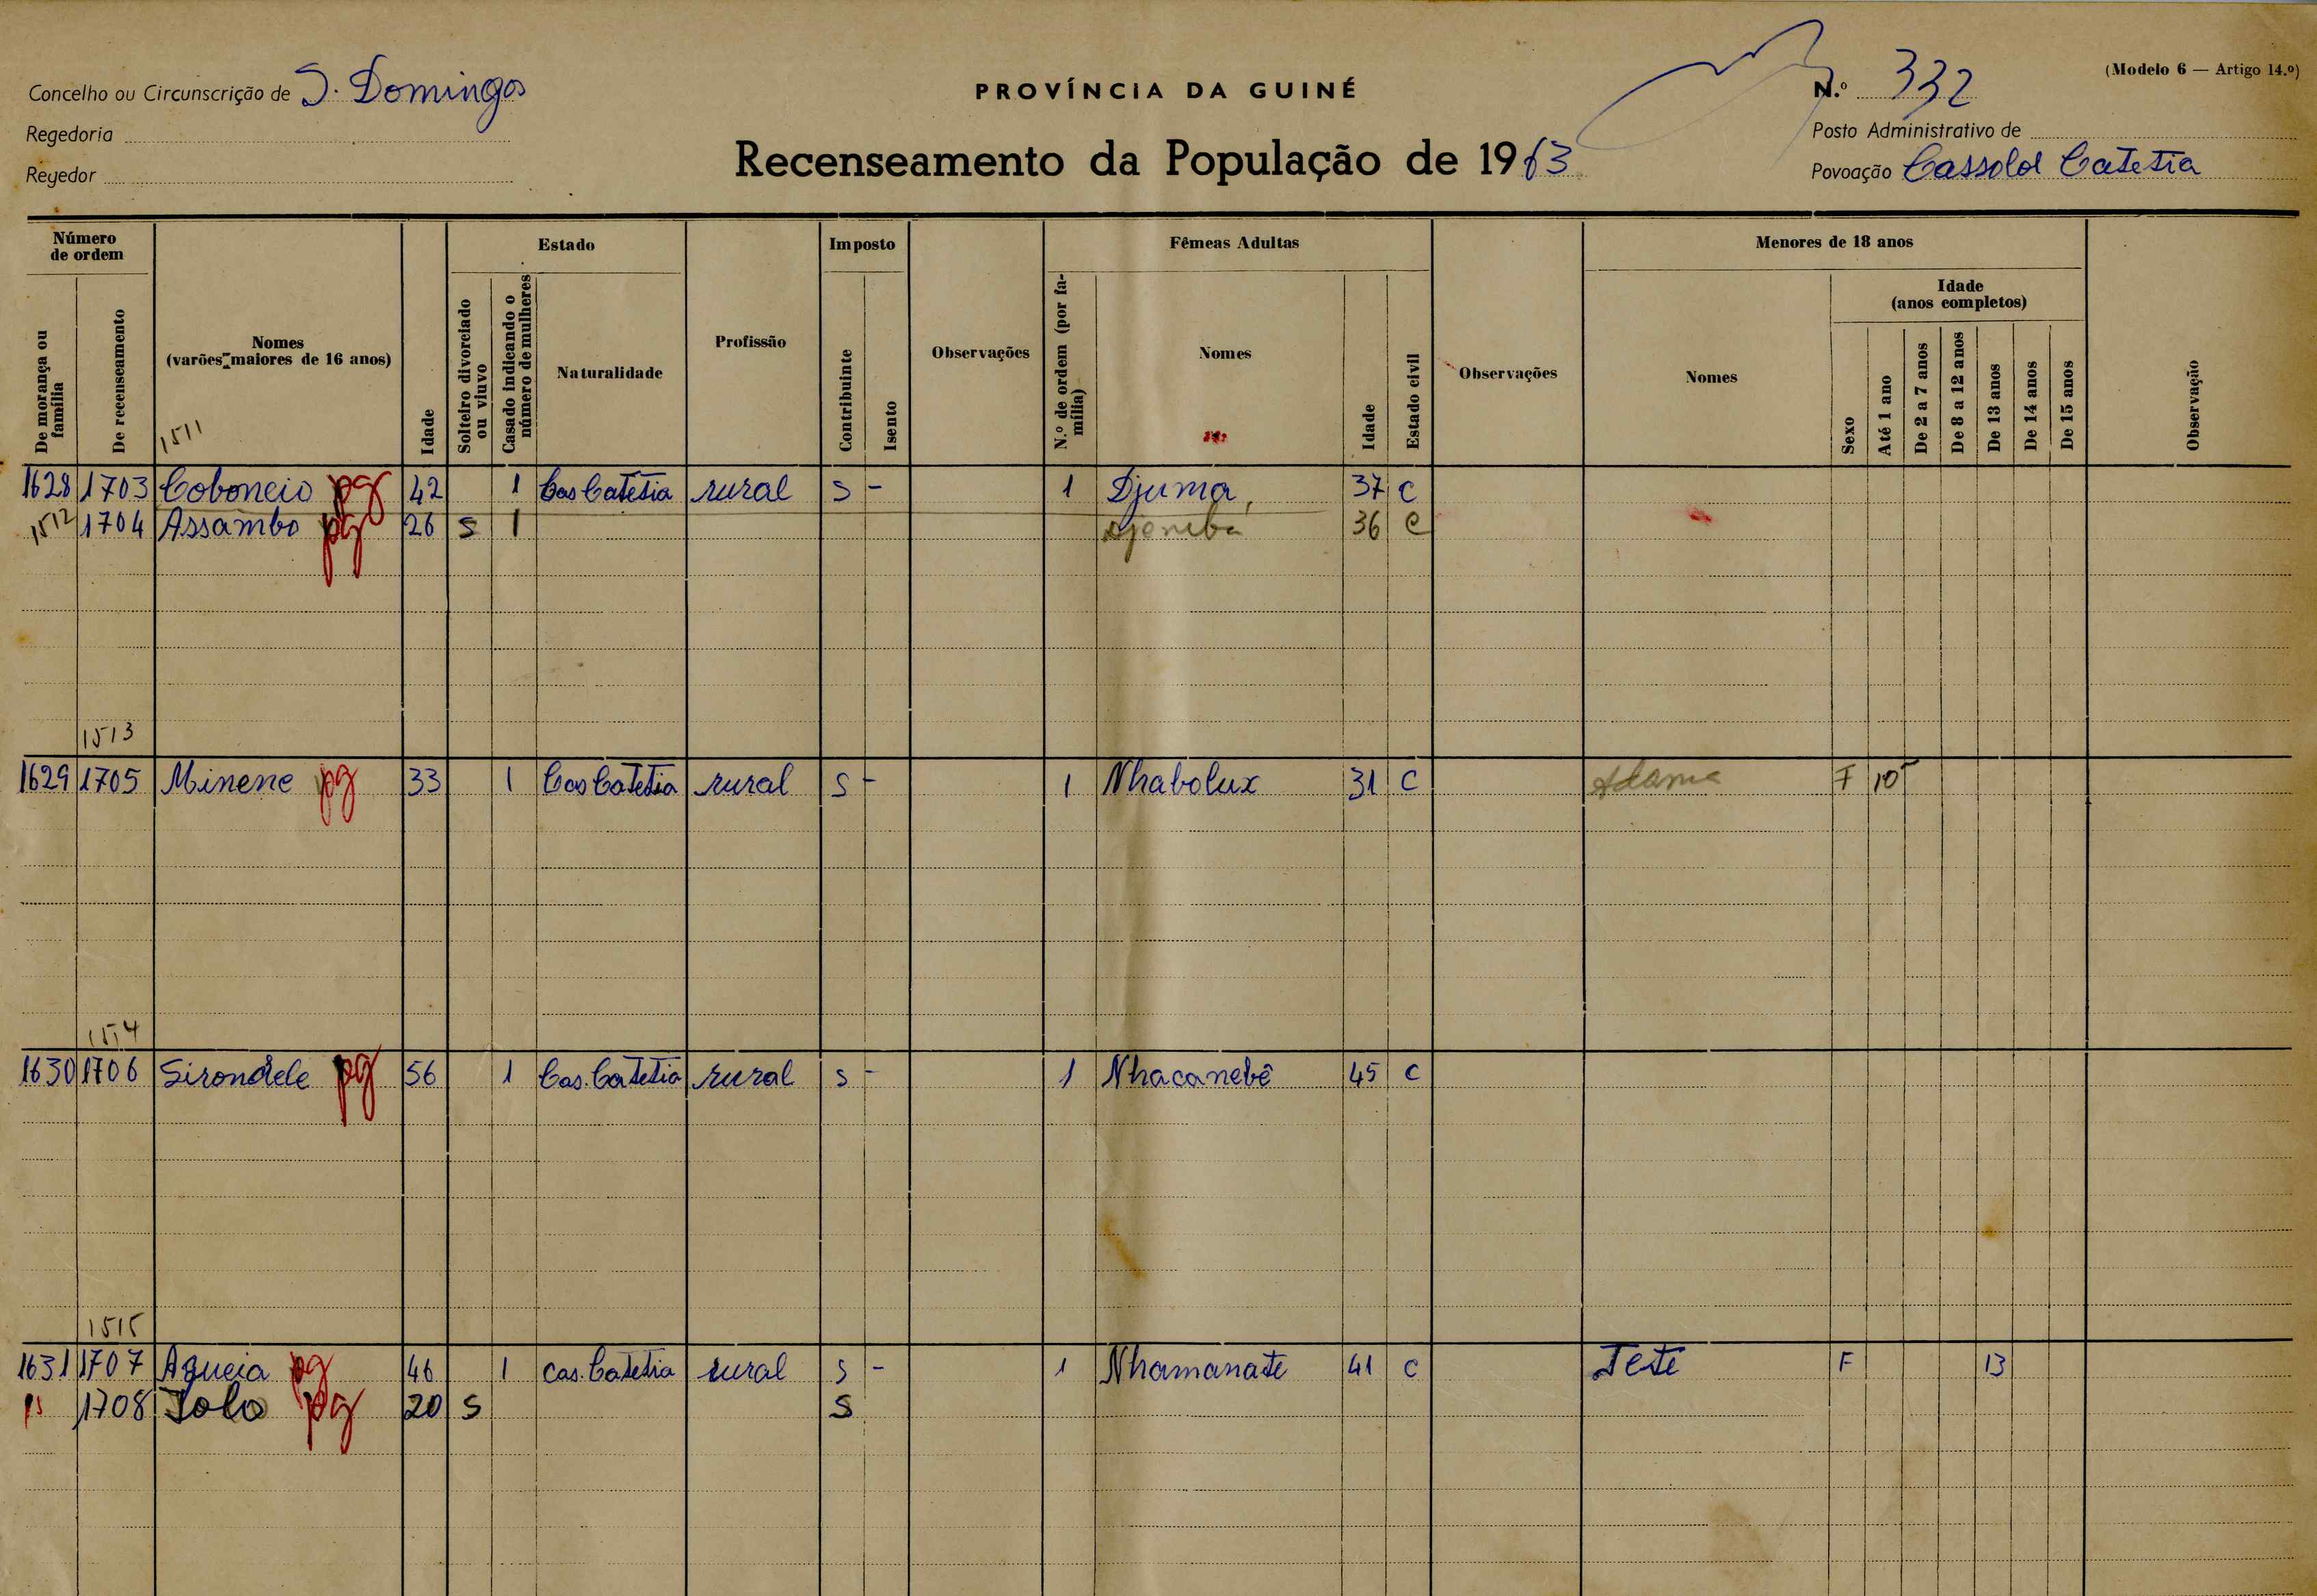 Concelho ou Circunscrição de S. Domingos
Regedoria
Regedor
PROVÍNCIA DA GUINÉ
Recenseamento da População de 1963
(Modelo 6 — Artigo 14.º)
N.º 332
Posto Administrativo de
Povoação Cassolol Catetia
Número de ordem
De morança ou família
De recenseamento
Nomes (varões maiores de 16 anos)
Idade
Estado
Solteiro divorciado ou viuvo
Casado indicando o número de mulheres
Naturalidade
Profissão
Imposto
Contribuinte
Isento
Observações
Fêmeas Adultas
N.º de ordem (por família)
Nomes
Idade
Estado civil
Observações
Menores de 18 anos
Nomes
Sexo
Idade (anos completos)
Até 1 ano
De 2 a 7 anos
De 8 a 12 anos
De 13 anos
De 14 anos
De 15 anos
Observação
1511
1628 1703 Coboneio pg 42 1 Cas Catetia rural S - 1 Djuma 37 C
1512 1704 Assambo pg 26 S 1 Djenibá 36 C
1513
1629 1705 Minene pg 33 1 Cas Catetia rural S - 1 Nhabolux 31 C Adama F 10
1514
1630 1706 Sirondele pg 56 1 Cas. Catetia rural S - 1 Nhacanebê 45 C
1515
1631 1707 Agueia pg 46 1 Cas. Catetia rural S - 1 Nhamanate 41 C Tete F 13
1708 Jolo pg 20 S S